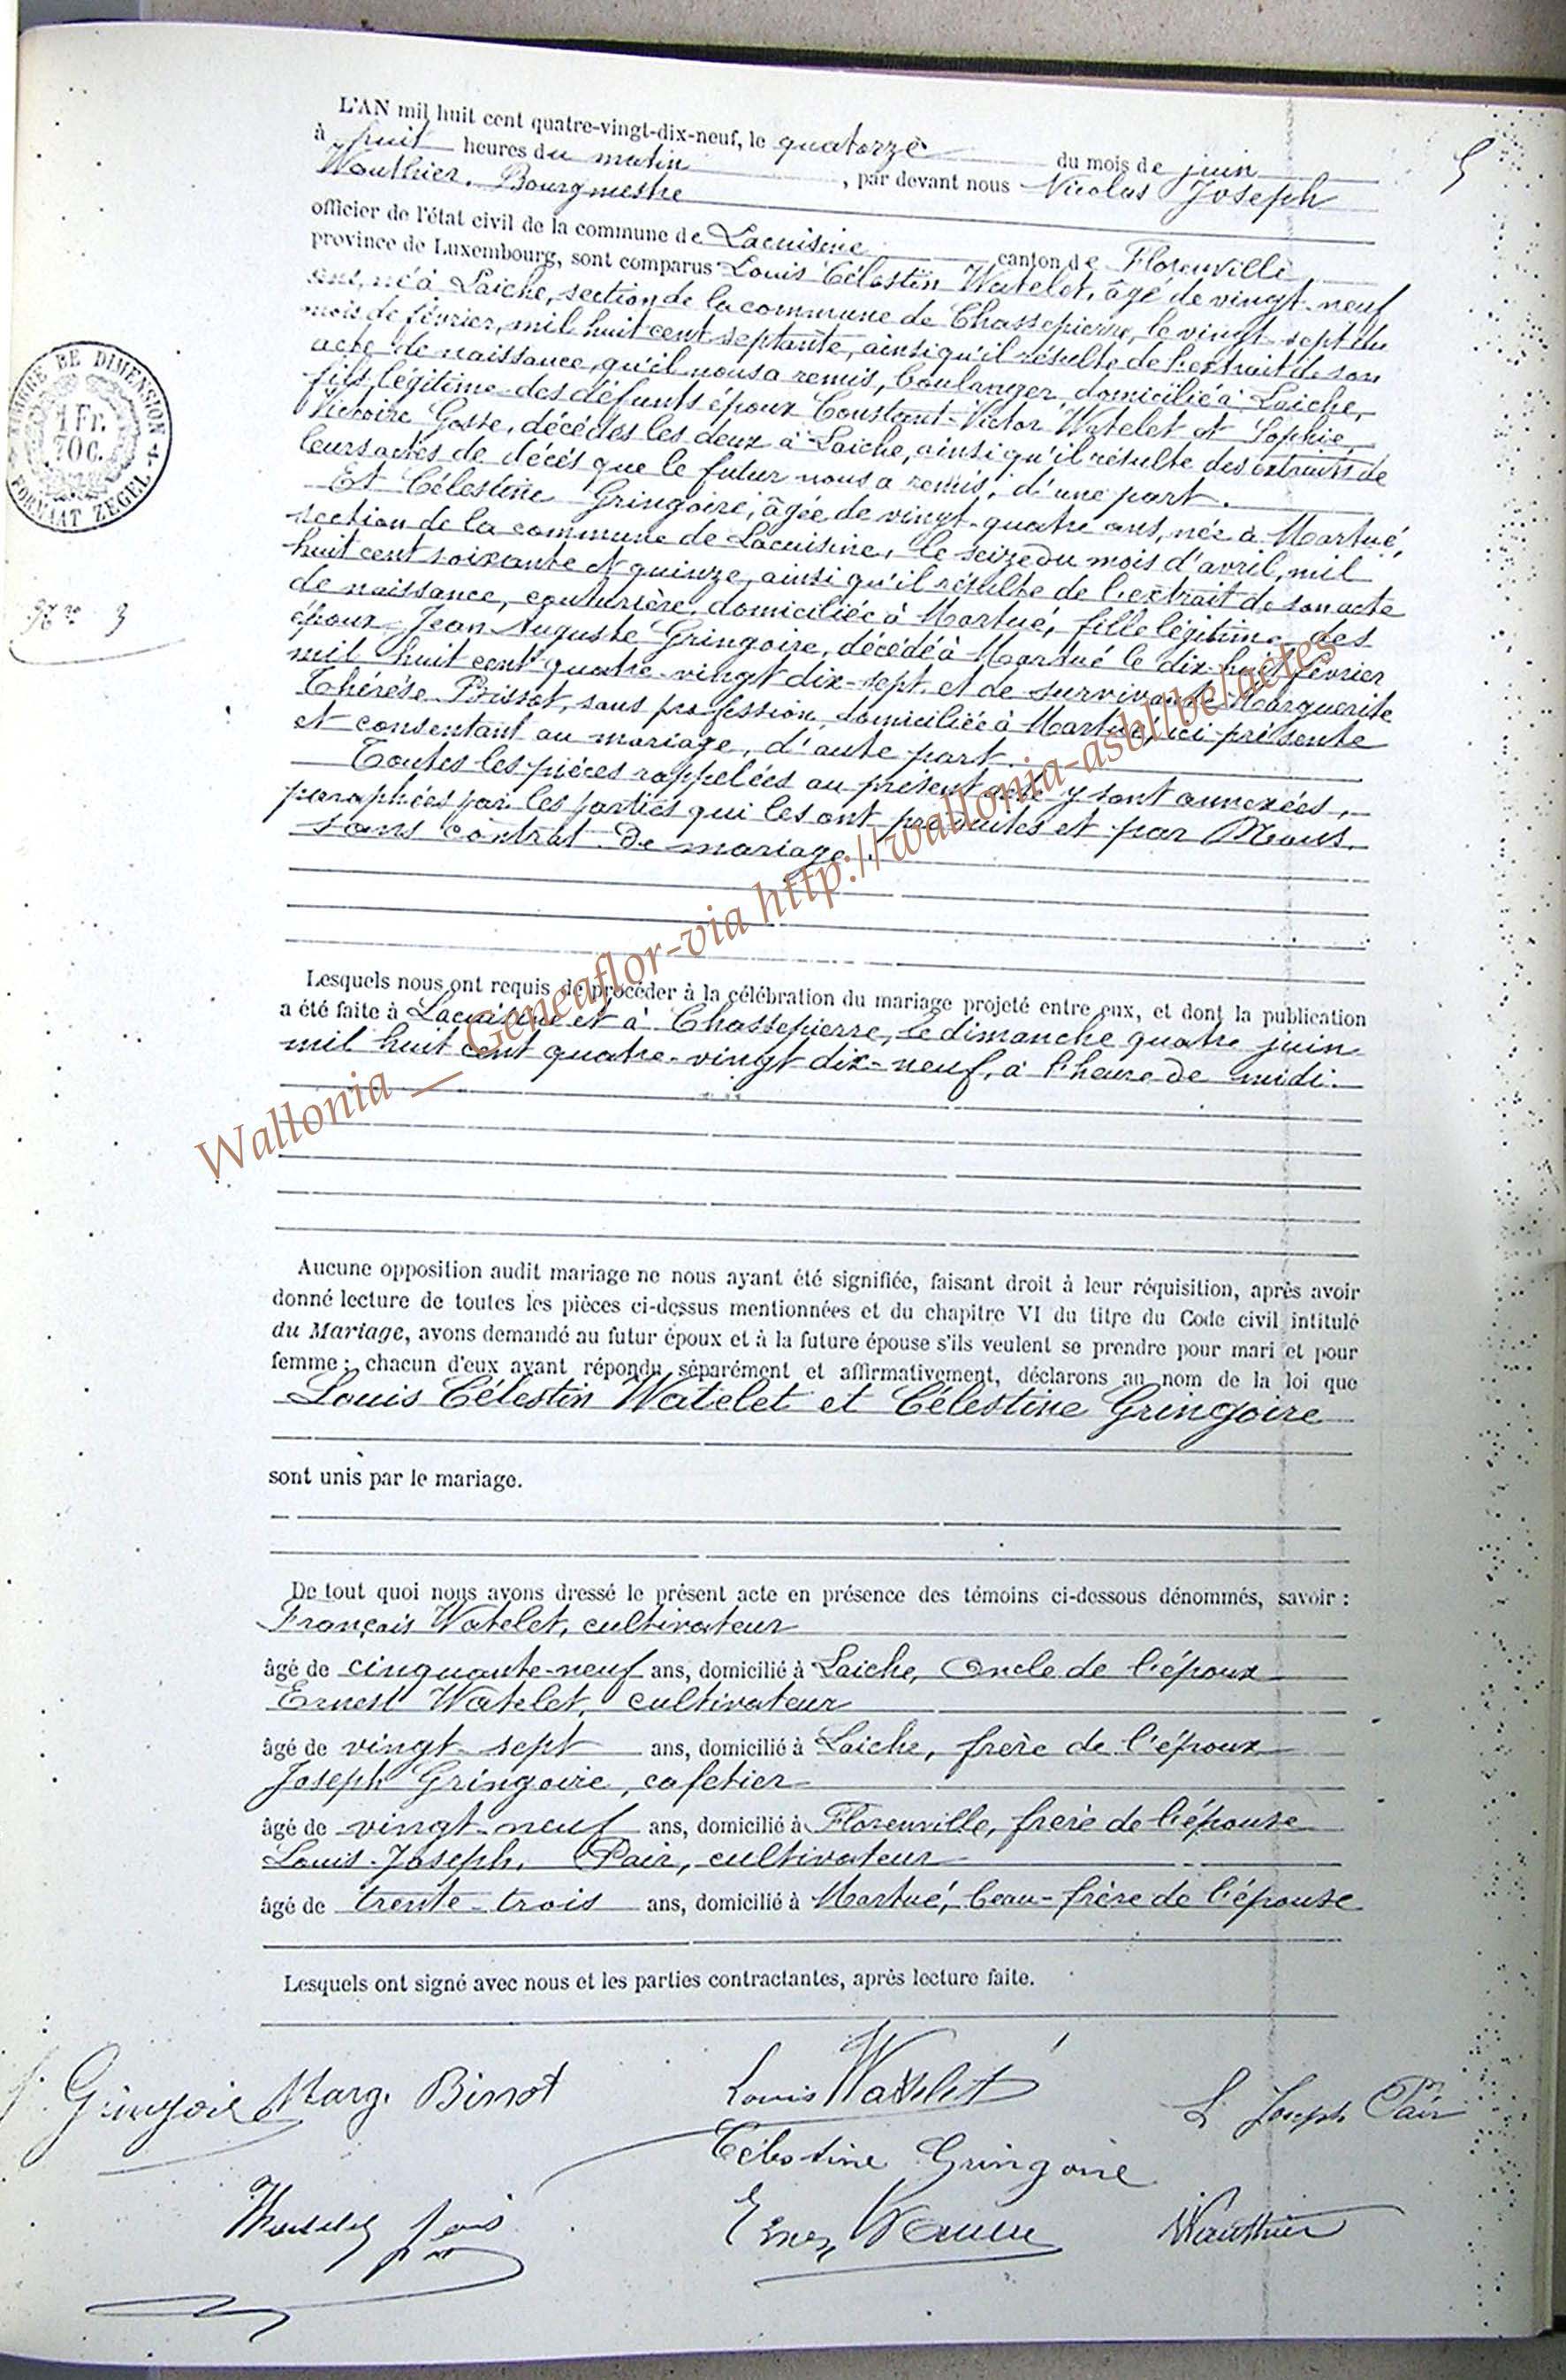 L'AN mil huit cent quatre-vingt-dix-neuf, le quatorze du mois de juin
à huit heures du matin, par devant nous Nicolas Joseph
Wauthier, Bourgmestre
officier de l'état civil de la commune de Lacuisine canton de Florenville
province de Luxembourg, sont comparus Louis Célestin Watelet, âgé de vingt-neuf
ans, né à Laiche, section de la commune de Chassepierre, le vingt-sept du
mois de février, mil huit cent septante, ainsi qu'il résulte de l'extrait de son
acte de naissance qu'il nous a remis, boulanger, domicilié à Laiche,
fils légitime des défunts époux Constant-Victor Watelet et Sophie
Victoire Gosse, décédés les deux à Laiche, ainsi qu'il résulte des extraits de
leurs actes de décès que le futur nous a remis, d'une part.
Et Célestine Gringoire, âgée de vingt-quatre ans, née à Martué,
section de la commune de Lacuisine, le seize du mois d'avril, mil
huit cent soixante et quinze, ainsi qu'il résulte de l'extrait de son acte
de naissance, couturière, domiciliée à Martué, fille légitime des
époux Jean Auguste Gringoire, décédé à Martué le dix-huit février
mil huit cent quatre-vingt dix-sept, et de survivante Marguerite
Thérèse Bissot, sans profession, domiciliée à Martué, ici présente
et consentant au mariage, d'autre part.
Toutes les pièces rappelées au présent acte y sont annexées,
paraphées par les parties qui les ont produites et par Nous.
sans contrat de mariage.
Lesquels nous ont requis de procéder à la célébration du mariage projeté entre eux, et dont la publication
a été faite à Lacuisine et à Chassepierre, le dimanche quatre juin
mil huit cent quatre-vingt dix-neuf, à l'heure de midi.
Aucune opposition audit mariage ne nous ayant été signifiée, faisant droit à leur réquisition, après avoir
donné lecture de toutes les pièces ci-dessus mentionnées et du chapitre VI du titre du Code civil intitulé
du Mariage, avons demandé au futur époux et à la future épouse s'ils veulent se prendre pour mari et pour
femme ; chacun d'eux ayant répondu séparément et affirmativement, déclarons au nom de la loi que
Louis Célestin Watelet et Célestine Gringoire
sont unis par le mariage.
De tout quoi nous avons dressé le présent acte en présence des témoins ci-dessous dénommés, savoir :
François Watelet, cultivateur
âgé de cinquante-neuf ans, domicilié à Laiche, Oncle de l'époux
Ernest Watelet, cultivateur
âgé de vingt-sept ans, domicilié à Laiche, frère de l'époux
Joseph Gringoire, cafetier
âgé de vingt-neuf ans, domicilié à Florenville, frère de l'épouse
Louis-Joseph Pair, cultivateur
âgé de trente-trois ans, domicilié à Martué, beau-frère de l'épouse
Lesquels ont signé avec nous et les parties contractantes, après lecture faite.
J. Gringoire Marg. Bissot Louis Watelet L Joseph Pair
Célestine Gringoire
Watelet fois Ernest Wauthier
TIMBRE DE DIMENSION
1 Fr.
70 C.
FORMAAT ZEGEL
No 3
5
Wallonia _ Geneaflor-via http://wallonia-asbl/be/actes